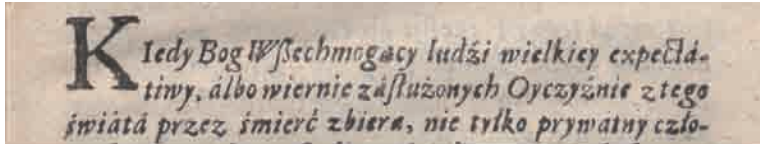 KIedy Bog Wſzechmogący ludźi wielkiey expectá-
tiwy, álbo wiernie záſłużonych Oyczyźnie z tego
świátá przez śmierć zbiera, nie tylko prywatny czło-